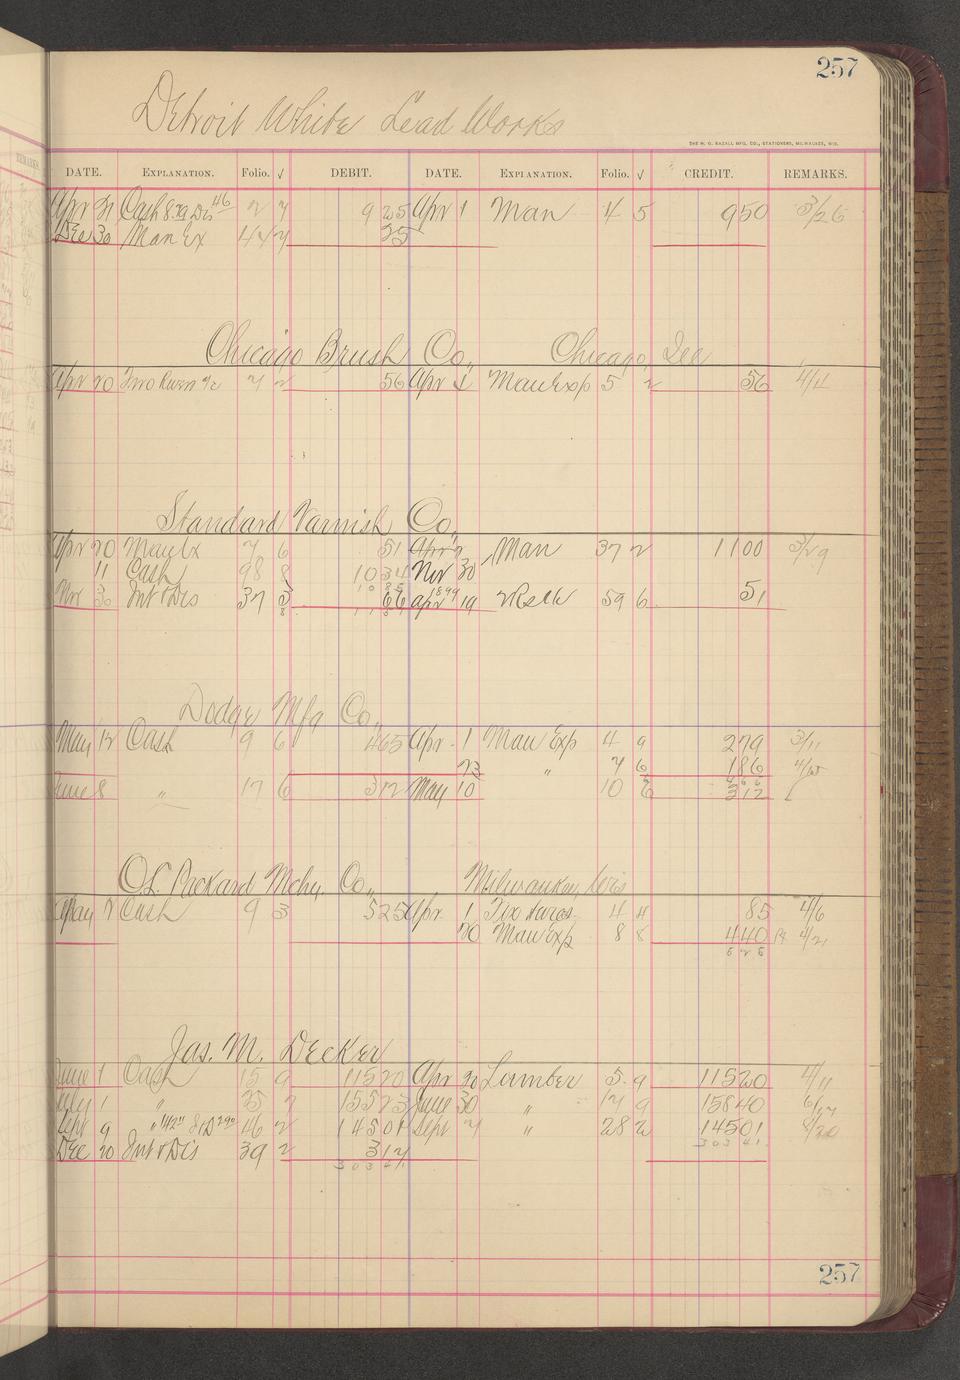 257
Detroit White Lead Works
THE H. G. RAZALL MFG. CO., STATIONERS, MILWAUKEE, WIS.
REMARKS.
DATE. EXPLANATION. Folio. √ DEBIT. DATE. EXPLANATION. Folio. √ CREDIT. REMARKS.
Apr 21 Cash 2 7 9 25 Apr 1 Man 4 5 9 50 3/26
Dec 30 Man Ex 25
Chicago Brush Co., Chicago, Ill
Apr 20 7 2 56 Apr 1 Man Exp 5 2 56 4/11
Standard Varnish Co.,
Apr 20 Man Ex 7 6 51 Apr 2 Man 37 2 11 00 3/29
11 Cash 98 8 10 34 Nov 30
10 85
Nov 30 Int & Dis 37 3 66 1899 Apr 19 59 6 51
8
Dodge Mfg Co.,
May 12 Cash 9 6 4 65 Apr. 1 Man Exp 4 9 2 79 3/11
23 " 7 6 1 86 4/15
4 65
June 8 " 17 6 3 12 May 10 10 6 3 12
O.L. Packard Mchy. Co., Milwaukee, Wis
May 2 Cash 9 3 5 25 Apr. 1 4 4 85 4/6
20 Man Exp 8 8 4 40 4/21
5 25
Jas. M. Decker
June 1 Cash 15 9 115 20 Apr 20 Lumber 5 9 115 20 4/11
July 1 " 25 2 155 23 June 30 " 17 9 158 40
Sept 9 " 46 2 145 01 Sept 7 " 28 2 145 01 8/20
303 41
Dec 20 Int & Dis 39 2 3 17
303 41
257